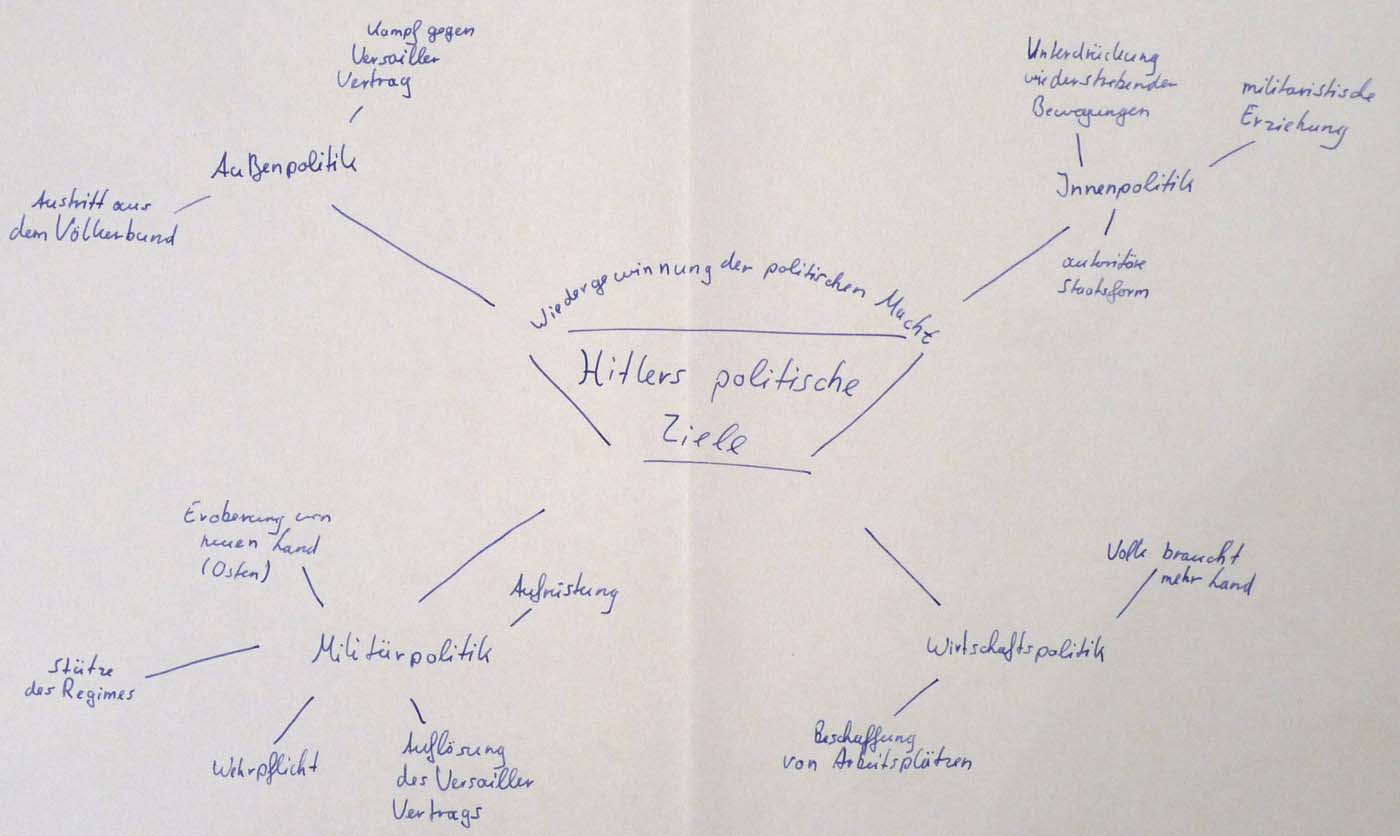 Kampf gegen
Versailler
Vertrag
Außenpolitik
Austritt aus
dem Völkerbund
Unterdrückung
wiederstrebender
Bewegungen
militaristische
Erziehung
Innenpolitik
autoritäre
Staatsform
Wiedergewinnung der politischen Macht
Hitlers politische
Ziele
Eroberung von
neuen Land
(Osten)
Aufrüstung
Militärpolitik
Stütze
des Regimes
Wehrpflicht
Auflösung
des Versailler
Vertrags
Volk braucht
mehr Land
Wirtschaftspolitik
Beschaffung
von Arbeitsplätzen